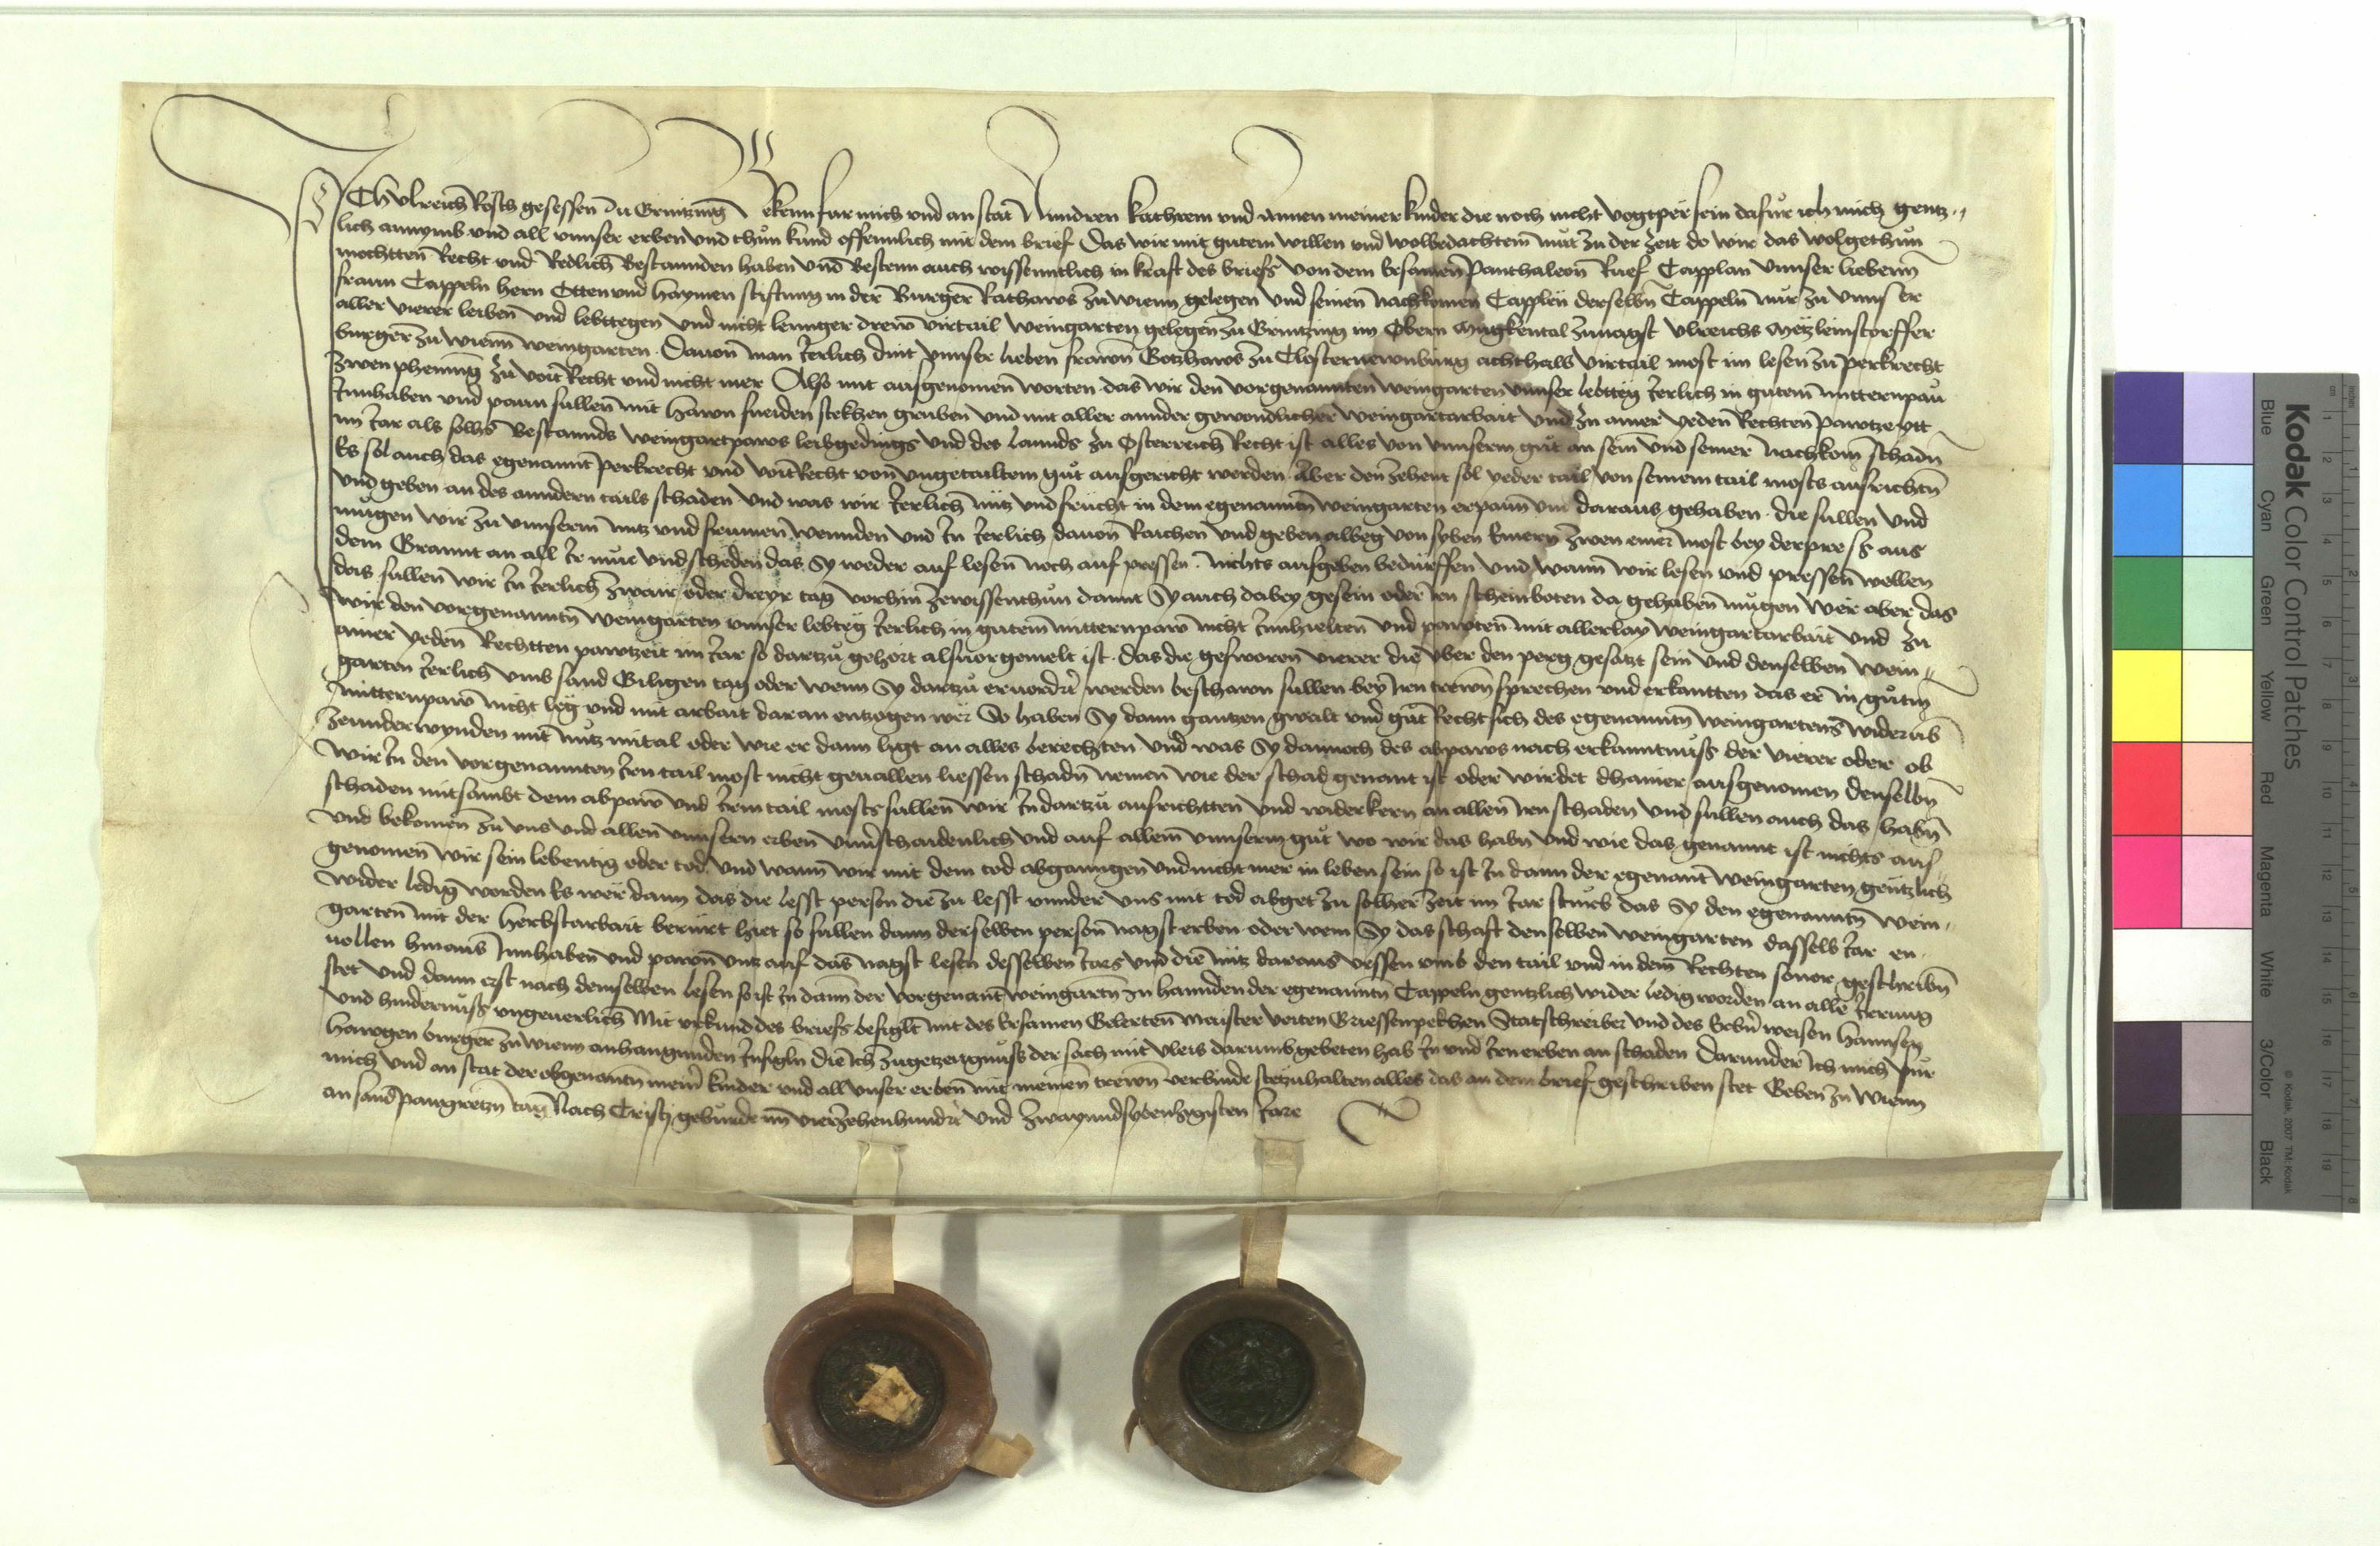 ICh Ulreich Rosch gesessen zu Grintzing Bekenn fur mich und an stat Anndren Kathrein und Annen meiner kinder die noch nicht vogtper sein dafůr ich mich gentz„
lich annymb und all unnser erben und thůn kund offennlich mit dem brief Das wir mit gutem willen und wolbedachtem můt zu der zeit do wir das wolgethůn
mochtten Recht und Redlich Bestannden haben Und Besteen auch wissenntlich in kraft des briefs von dem Ersamen Panthaleon Ruef Capplan Unnser liebenn
fraun Cappeln hern Otten und Haymen stiftung in der Burger Rathaws zu wienn gelegen Und seinen nachkomen Capplen derselbn Cappeln nůr zu unnser
aller vierer leiben und lebttegen und nicht lennger drew virtail weingarten gelegen zu Grintzing im Obern Mugkental zunagst Ulreichs Metzleinstorffer
burger zu wienn weingarten. Dauon man Ierlich dint Unnser lieben frawn Gotzhaws zu Closternewnburg achthalb virtail most im lesen zu perkrecht
zwen phenning zu voitRecht und nicht mer Also mit ausgenomen worten das wir den vorgenannten weingarten unnser lebtteg Ierlich in gutem mitternpaů
Innhaben und pawn sullen mit hawn sneiden stekhen gruben und mit aller annder gewondlicher weingartarbait Und zu ainer yeden Rechten pawtzeytt
im Iar als solhs Bestannds weingartpaws leibgedings und des lannds zu Osterreich Recht ist alles von unnserm gůt an sein und seiner nachkom schadn
Es sol auch das egenannt perkrecht und voitRecht von ungetailtem gůt ausgericht werden Aber den zehent sol yeder tail von seinem tail mosts ausrichtn
und geben an des anndern tails schaden Und was wir Ierlich nutz und frucht in dem egenanntn weingarten erpaun und daraus gehaben. die sullen und
mugen wir zu unnserm nutz und frumen wennden Und In Ierlich dauon Raichen und geben albeg von syben Emern zwen emer most bey der press aus
dem Grannt an all Ir můe und scheden das Sy weder auf lesen noch auf pressen. nichts ausgeben bedurffen Und wann wir lesen und pressen wellen
das sullen wir In Ierlich zwair oder dreyr tag vorhin zewissenthůn damit Sy auch dabey gesein oder Irn scheinboten da gehaben mugen Wer aber das
wir den vorgenanntn weingarten unnser lebteg Ierlich in gutem mitternpaw nicht Innhielten und pawten mit allerlay weingartarbait und zu
ainer yeden Rechtten pawtzeit im Iar so dartzů gehort alsuorgemelt ist. das die gesworen vierer die uber den perg gesatzt sein und denselben wein„
garten Ierlich umb sand Giligen tag oder wenn Sy dartzů eruordrt werden beschawn sullen bey Irn trewn sprechen und erkantten das er in gůtm
mitternpaw nicht leg und mit arbait daran entzogen wer So haben Sy dann gantzen gwalt und gůt Recht sich des egenanntn weingartens widerůb
zeunderwynden mit nutz mital oder wie er dann ligt an alles berechten und was Sy dannoch des abpaws nach erkanntnůss der vierer oder ob
wir In den vorgenannten Irn tail most nicht geuallen liessen schadn nemen wie der schad genant ist oder wirdet dhainer ausgenomen denselbn
schaden mitsambt dem abpaw und Irem tail mosts sullen wir In dartzů ausrichtten und widerkern an allen Irn schaden Und sullen auch das habn
und bekomen zu uns und allen unnsern erben unuerschaidenlich und auf allem unnserm gůt wo wir das habn und wie das genannt ist nichts aus„
genomen wir sein lebentig oder tod Und wann wir mit dem tod abganngen und nicht mer in leben sein so ist In dann der egenant weingarten gentzlich
wider ledig worden Es wer dann das die lesst person die zu lesst unnder uns mit tod abget zu solher zeit im Iar stůrb das Sy den egenanntn wein„
garten mit der herbstarbait berurt hiet so sullen dann derselben person nagst erben oder wem Sy das schaft denselben weingarten dasselb Iar en„
uollen hinaus Innhaben und pawn untz auf das nagst lesen desselben Iars Und die nutz daraus vessen umb den tail und in dem Rechten souor geschribn
stet Und dann erst nach demselben lesen so ist In dann der vorgenant weingartn zu hannden der egenanntn Cappeln gentzlich wider ledig worden an alle Irrung
und hindernůss ungeuerlich Mit urkund des briefs besiglt mit des Ersamen Gelerten Maister Veiten Griessenpekhen Statschreiber und des Erbrn weisen Hannsen
Hawgen burger zu Wienn anhangunden Insigln die Ich zugetzeugnůss der sach mit vleis darumb gebeten hab In und Iren erben an schaden Darunder Ich mich fůr
mich und an stat der obgenantn meinr kinder und all unser erben mit meinen trewn verbinde stetzuhalten alles das an dem brief geschriben stet Geben zu Wienn
an sand Pangretzn tag Nach Cristi geburde im vierzehenhundrt und zwayundsybenzigisten Iare
Kodak Color Control Patches
Blue Cyan Green Yellow Red Magenta White 3/Color Black
© Kodak, 2007 TM: Kodak